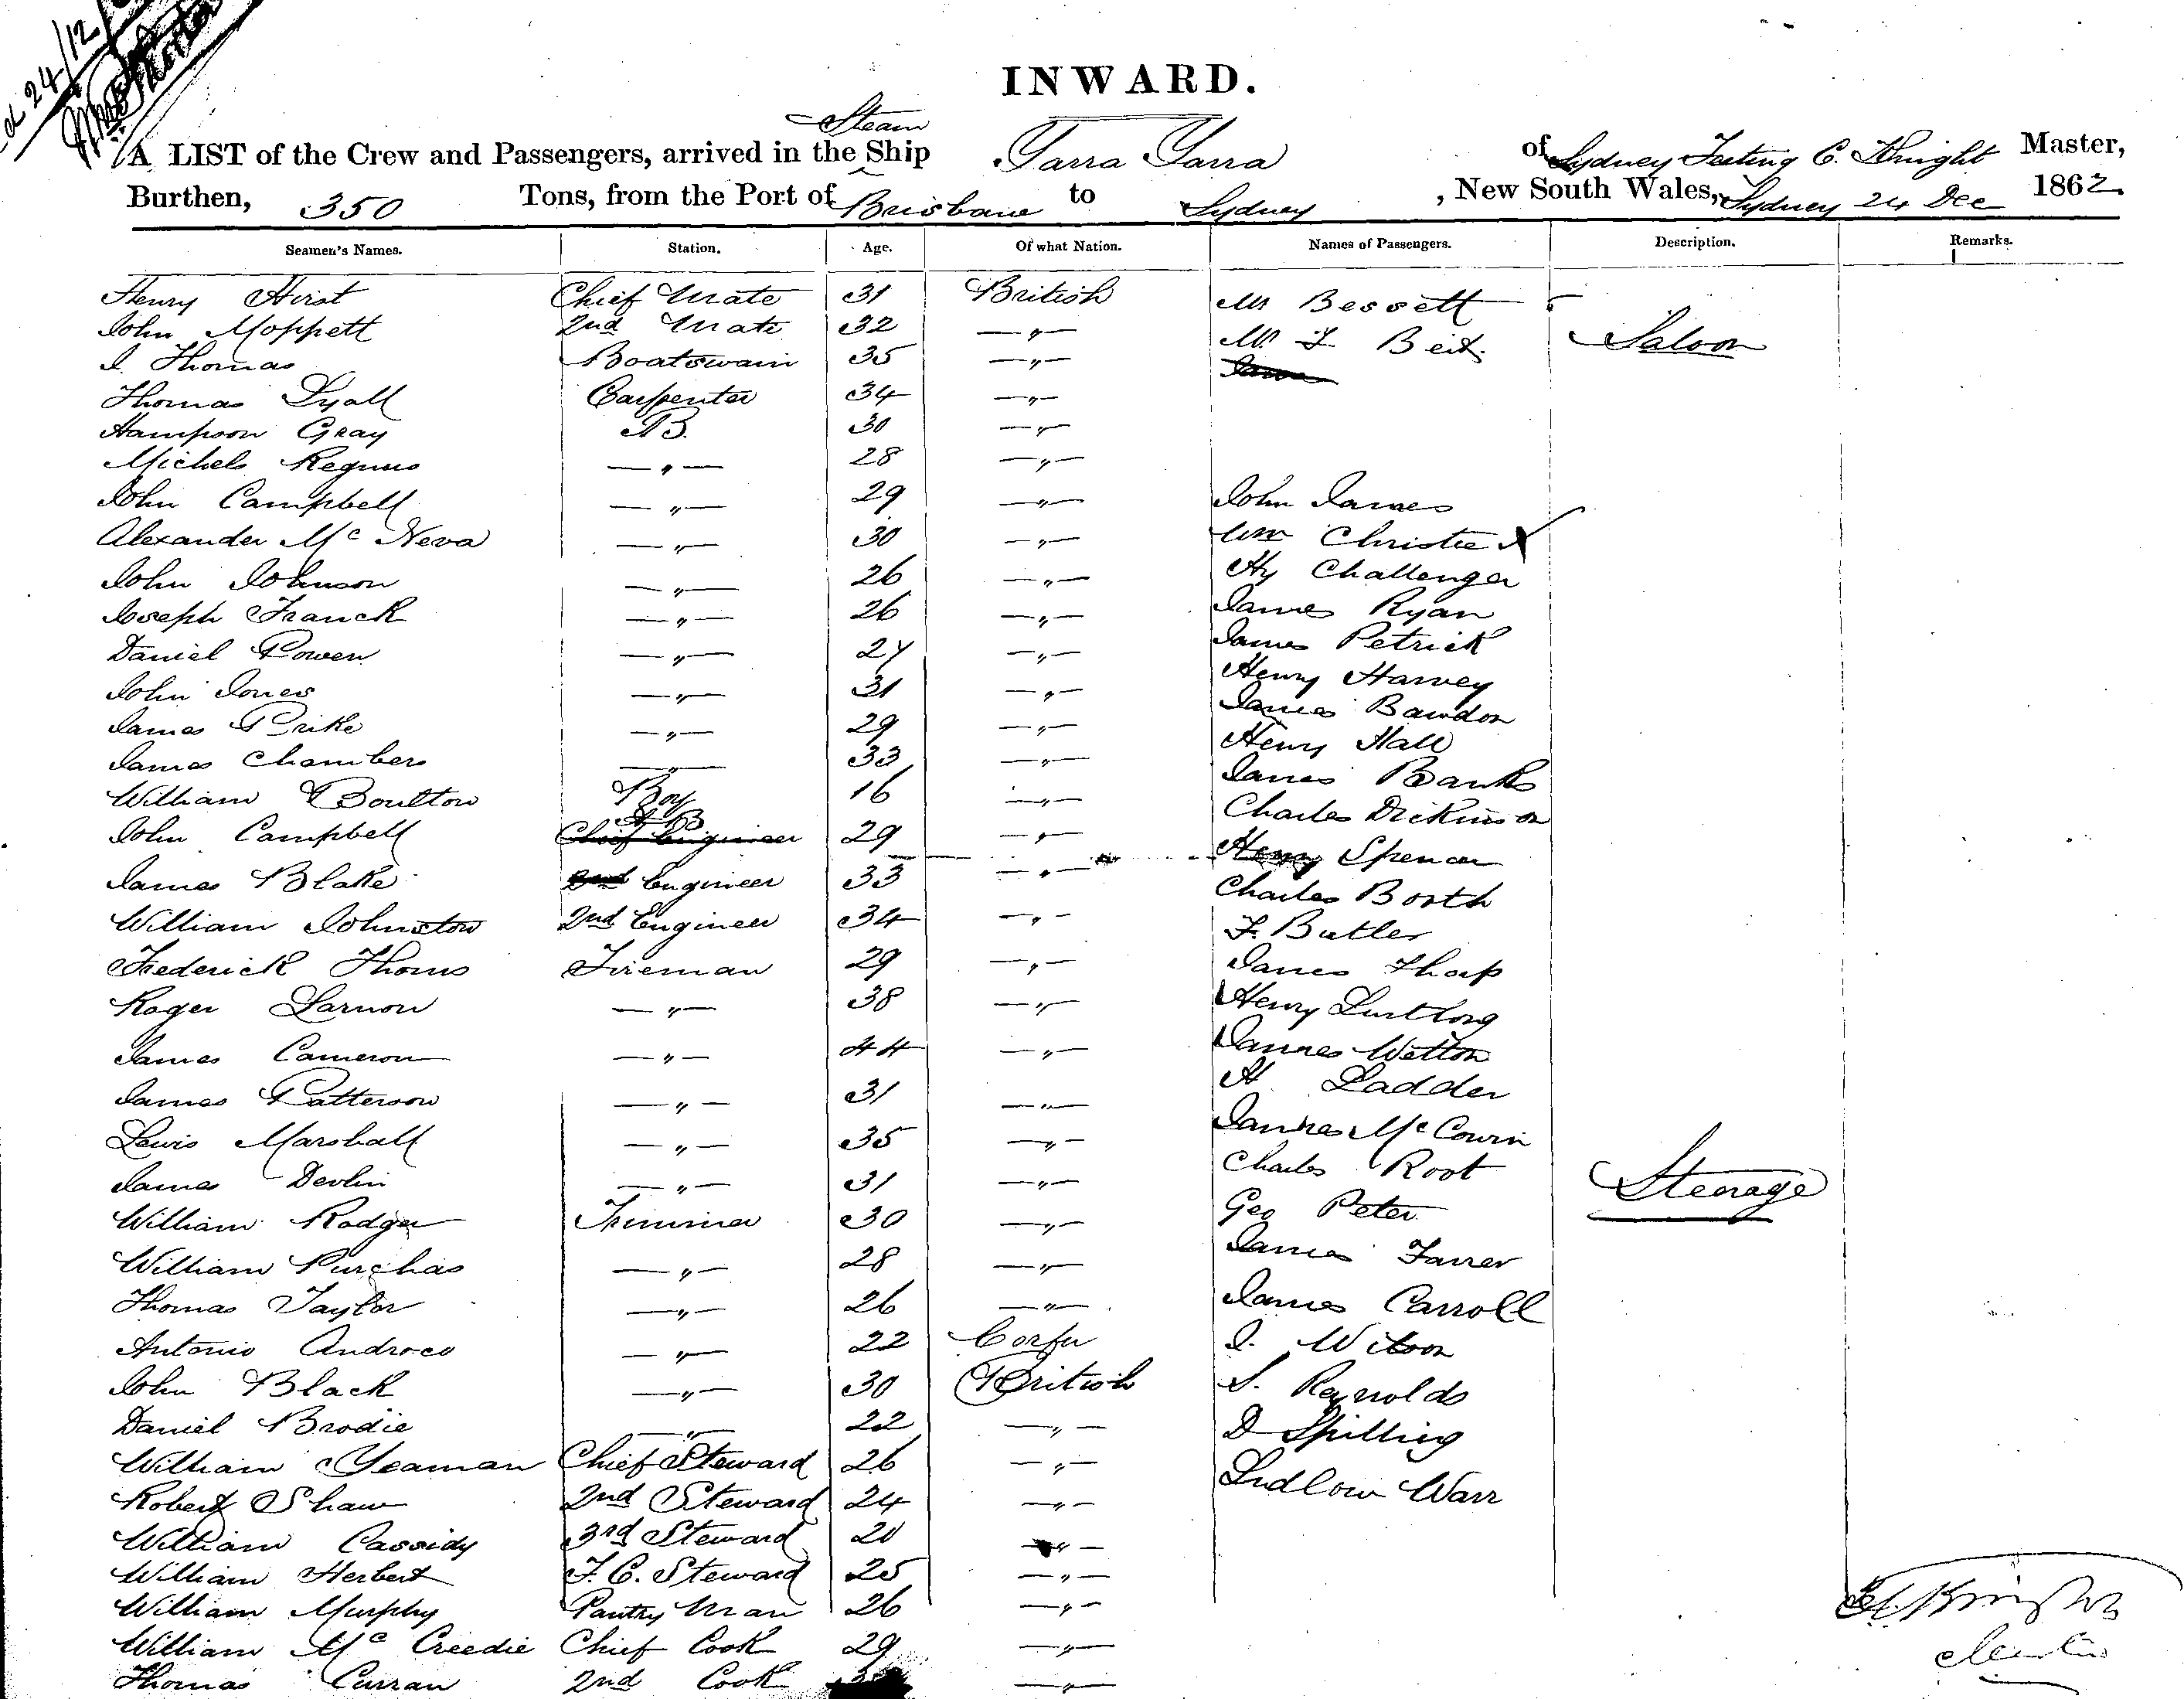 24/12
INWARD.
Steam
A LIST of the Crew and Passengers, arrived in the Ship Yarra Yarra of Sydney Testing C. Knight Master,
Burthen, 350 Tons, from the Port of Brisbane to Sydney, New South Wales, Sydney 24 Dec 1862
Seamen's Names. Station. Age. Of what Nation. Names of Passengers. Description. Remarks.
Henry Hirst Chief Mate 31 British Mr Bessett
John Moppett 2nd Mate 32 —"— Mr I Beit Saloon
I. Thomas Boatswain 35 —"—
Thomas Lyall Carpenter 34 —"—
Hampson Gray AB. 30 —"—
Michels —"— 28 —"—
John Campbell —"— 29 —"— John James
Alexander Mc Neva —"— 30 —"— Wm Christie X
John Johnson —"— 26 —"— Hy Challenger
Joseph Franck —"— 26 —"— James Ryan
Daniel Power —"— 27 —"— James Petrick
John Jones —"— 31 —"— Henry Harvey
James Prike —"— 29 —"— James Bawdon
James Chambers —"— 33 —"— Henry Hall
William Boulton Boy 16 —"— James Banks
John Campbell AB Chief Engineer 29 —"— Charles Dickinson
James Blake 2nd Engineer 33 —"— Henry Spencer
William Johnston 2nd Engineer 34 —"— Charles Booth
Frederick Thoms Fireman 29 —"— F. Butler
Roger Larnon —"— 38 —"— James Thorp
James Cameron —"— 44 —"— Henry
James Patterson —"— 31 —"— James Wetton
Lewis Marshall —"— 35 —"— H Ladder
James Devlin —"— 31 —"— James Mc Cowin
William Rodger Trimmer 30 —"— Charles Root Steerage
William Purchas —"— 28 —"— Geo Peter
Thomas Taylor —"— 26 —"— James Farrer
Antonio Androco —"— 22 Corfu James Carroll
John Black —"— 30 British J. Wilson
Daniel Brodie —"— 22 —"— S. Reynolds
William Yeaman Chief Steward 26 —"— D Spilling
Robert Shaw 2nd Steward 24 —"— Ludlow Warr
William Cassidy 3rd Steward 20 —"—
William Herbert F. C. Steward 25 —"—
William Murphy Pantry Man 26 —"—
William Mc Creedie Chief Cook 29 —"—
Thomas Curran 2nd Cook —"—